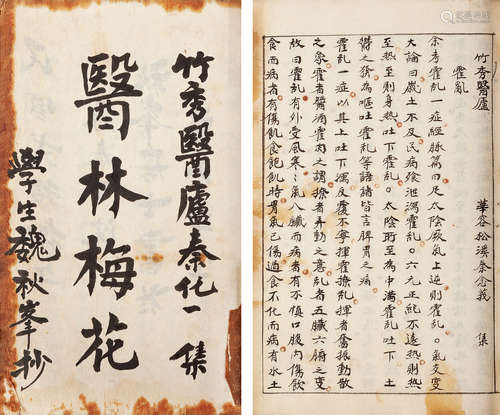 竹秀醫廬秦化一 集
醫林梅花
學生魏秋峯抄
竹秀醫廬
霍亂 華谷松溪秦念義 集
余考霍乱一症經脉篇曰足太陰厥氣上逆則霍乱氣交變
大論曰歲土不及民病飱泄霍乱六元正紀不遠熱則熱
至熱至則身熱吐下霍乱太陰所至為中滿霍乱吐下土
鬱之發為嘔吐霍乱等語諸皆言脾胃之病
霍乱一症以其上吐下瀉反覆不寧揮霍撩乱揮者奮振動散
之象霍者霍濟霍肉之謂撩者弄動之意乱者五臟六腑之变
故曰霍乱有外受風寒之氣入臟而病者有不慎口腹内傷飲
食而病者有傷飢食飽飢時胃氣已傷過食不化而病有水土